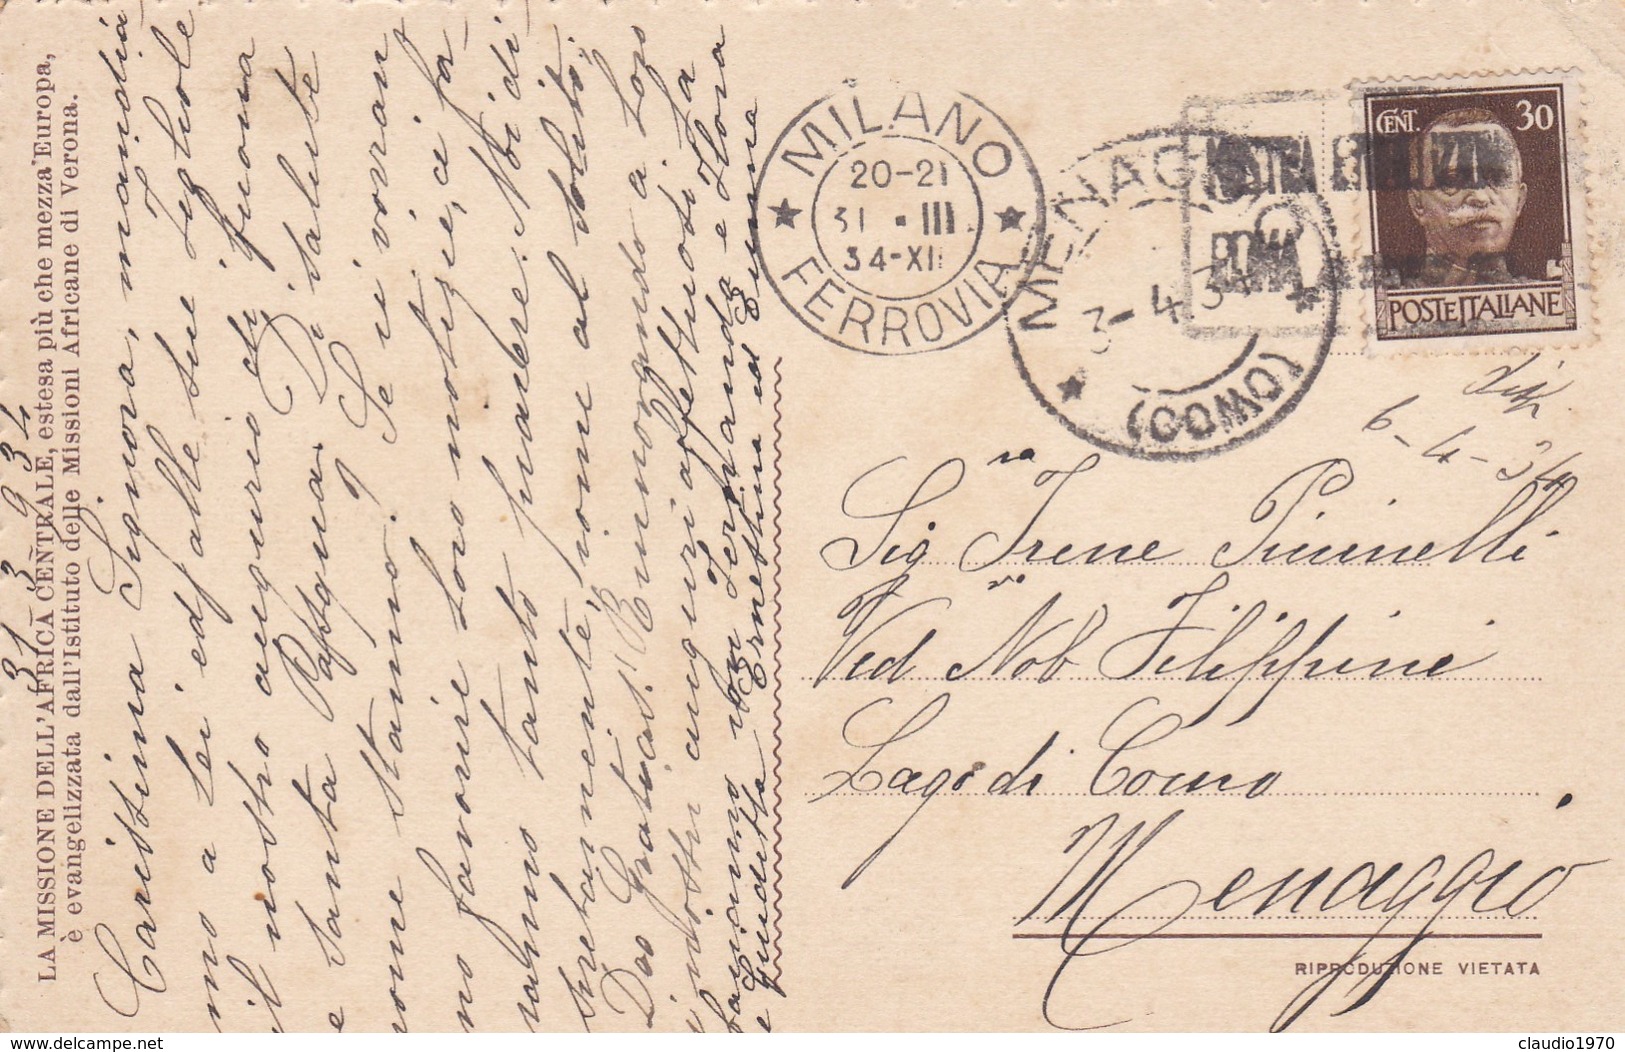 LA MISSIONE DELL'AFRICA CENTRALE, estesa più che mezza Europa,
è evangelizzata dall'Istituto delle Missioni Africane di Verona.
31 3 934
Carissima Signora, mandia
mo a Lei ed alle sue figliuole
il nostro augurio di buona
e santa Pasqua. Di salute
come stanno? Se ci vorran
no favorire loro notizie, ci fa
ranno tanto piacere. Noi di
scretamente, come al solito,
Deo Gratias! Rinnovando a Loro
i nostri auguri affettuosi La
baciamo con Fernanda e Ilona
e Giuditta Ernestina ed Emma
MILANO
20-21
31 • III
34-XII
FERROVIA
MENAGGIO
3-4.34
(COMO)
MOSTRA
ROMA
CENT. 30
POSTE ITALIANE
6-4-34
Sig.ra Irene Pininelli
Ved.va Nob Filippini
Lago di Como
Menaggio
RIPRODUZIONE VIETATA
delcampe.net
claudio1970